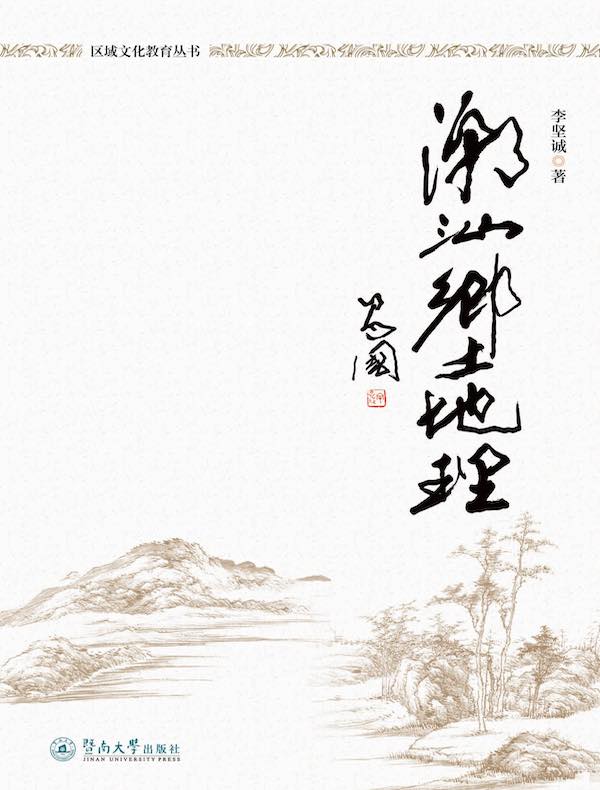 区域文化教育丛书
李坚诚◎著
潮汕鄉土地理
暨南大学出版社
JINAN UNIVERSITY PRESS